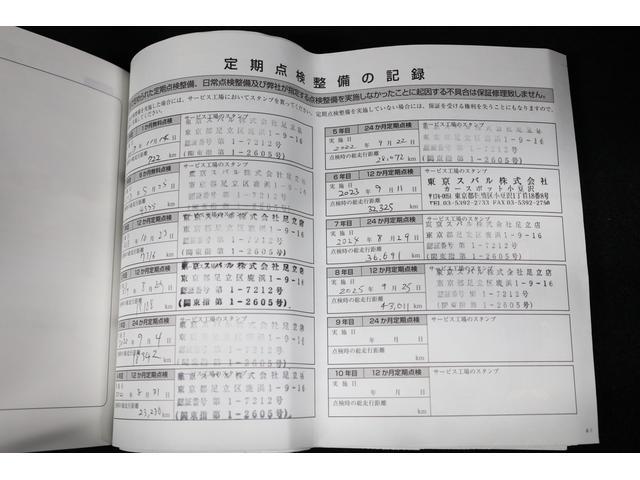 定期点検整備の記録
定期点検整備、日常点検整備及び弊社が指定する点検整備を実施しなかったことに起因する不具合は保証修理致しません。
サービス工場においてスタンプを貰ってください。
定期点検整備を実施していない場合には、保証を受ける権利を失うことにもなりますので、
サービス工場のスタンプ
東京スバル株式会社足立店
東京都足立区鹿浜1-9-16
認証番号 第1-7212号
(関東指第1-2605号)
722 km
サービス工場のスタンプ
東京スバル株式会社足立店
東京都足立区鹿浜1-9-16
認証番号 第1-7212号
(関東指第1-2605号)
12か月定期点検
サービス工場のスタンプ
東京スバル株式会社足立店
東京都足立区鹿浜1-9-16
認証番号 第1-7212号
(関東指第1-2605号)
サービス工場のスタンプ
東京スバル株式会社足立店
東京都足立区鹿浜1-9-16
認証番号 第1-7212号
(関東指第1-2605号)
24か月定期点検
サービス工場のスタンプ
9月4日
東京スバル株式会社足立店
東京都足立区鹿浜1-9-16
認証番号 第1-7212号
(関東指第1-2605号)
12か月定期点検
サービス工場のスタンプ
東京スバル株式会社足立店
東京都足立区鹿浜1-9-16
認証番号 第1-7212号
(関東指第1-2605号)
23,238 km
5年目 24か月定期点検
サービス工場のスタンプ
実施日
2022年9月22日
点検時の総走行距離
28,472 km
東京スバル株式会社足立店
東京都足立区鹿浜1-9-16
認証番号 第1-7212号
(関東指第1-2605号)
6年目 12か月定期点検
サービス工場のスタンプ
実施日
2023年9月11日
点検時の総走行距離
32,325 km
東京スバル株式会社
カースポット小豆沢
〒174-0051 東京都板橋区小豆沢1丁目18番8号
TEL03-5392-2733 FAX03-5392-2756
7年目 24か月定期点検
サービス工場のスタンプ
実施日
2024年8月29日
点検時の総走行距離
36,691 km
東京スバル株式会社足立店
東京都足立区鹿浜1-9-16
認証番号 第1-7212号
(関東指第1-2605号)
8年目 12か月定期点検
サービス工場のスタンプ
実施日
2025年9月25日
点検時の総走行距離
43,011 km
東京スバル株式会社足立店
東京都足立区鹿浜1-9-16
認証番号 第1-7212号
(関東指第1-2605号)
9年目 24か月定期点検
サービス工場のスタンプ
実施日
年 月 日
点検時の総走行距離
km
10年目 12か月定期点検
サービス工場のスタンプ
実施日
年 月 日
点検時の総走行距離
km